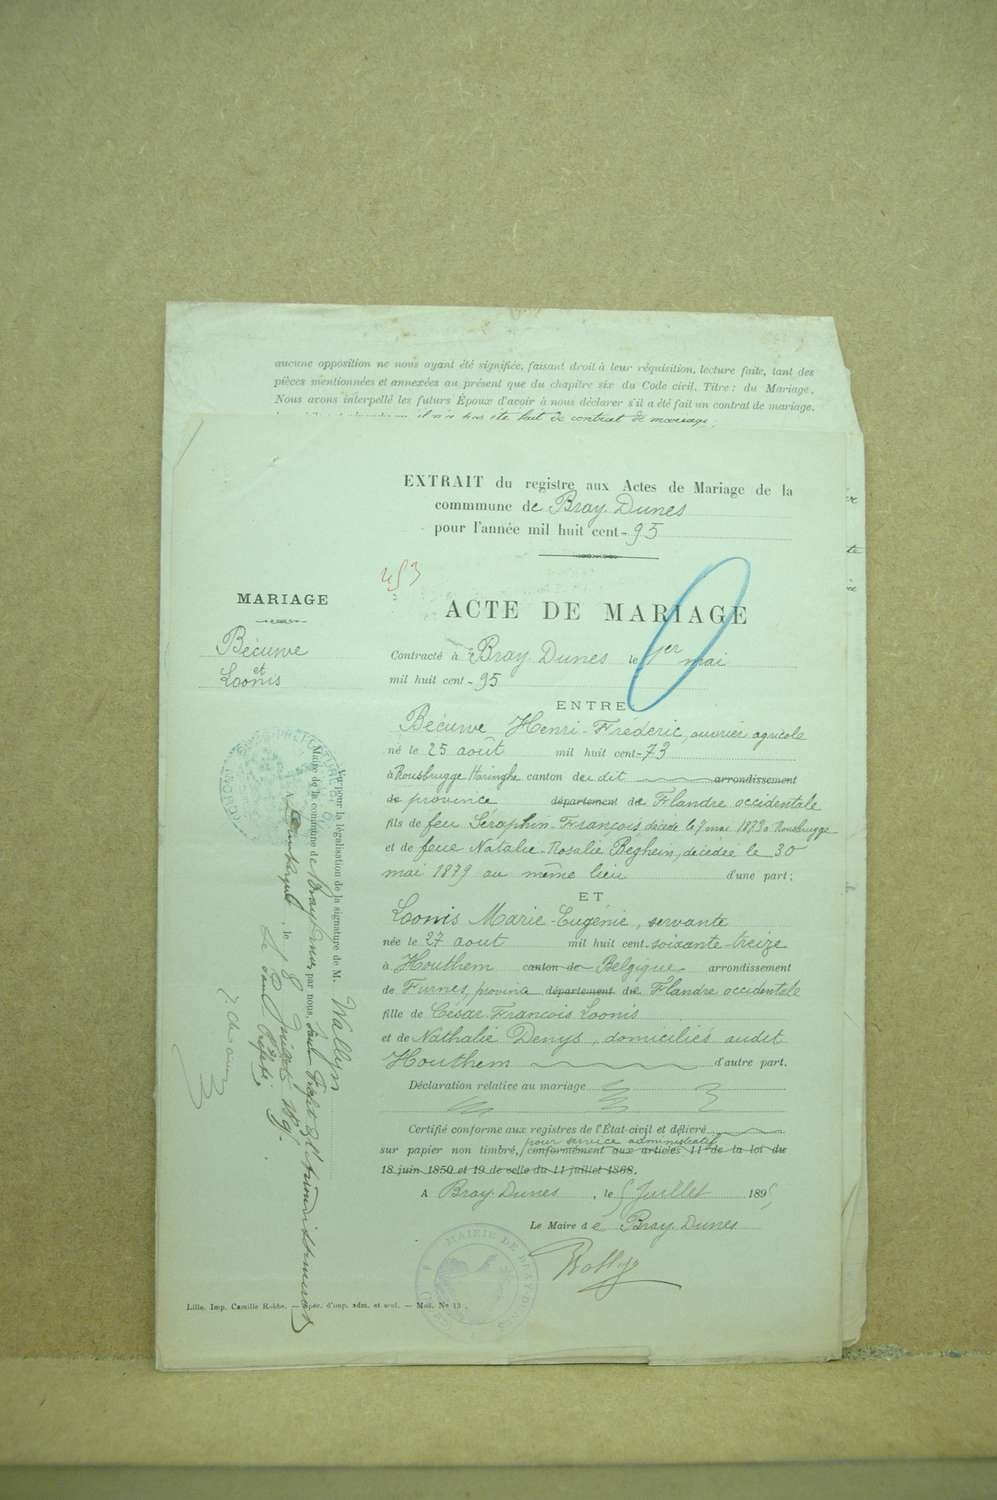 aucune opposition ne nous ayant été signifiée, faisant droit à leur réquisition, lecture faite, tant des
pièces mentionnées et annexées au présent que du chapitre six du Code civil, Titre : du Mariage.
Nous avons interpellé les futurs Époux d'avoir à nous déclarer s'il a été fait un contrat de mariage,
il n'a pas été fait de contrat de mariage.
EXTRAIT du registre aux Actes de Mariage de la
commmune de Bray Dunes
pour l'année mil huit cent-95
453
MARIAGE
Bécuwe
et
Loonis
ACTE DE MARIAGE
Contracté à Bray Dunes le 1er mai
mil huit cent-95
ENTRE
Bécuwe Henri-Fréderic, ouvrier agricole
né le 25 août mil huit cent-73
à Rousbrugge Haringhe canton de dit arrondissement
de province département de Flandre occidentale
fils de feu Séraphin-François, décédé le 7 mai 1873 à Rousbrugge
et de feue Natalie-Rosalie Beghein, décédée le 30
mai 1879 au même lieu d'une part ;
ET
Loonis Marie-Eugénie, servante
née le 27 août mil huit cent soixante-treize
à Houthem canton de Belgique arrondissement
de Furnes, province département de Flandre occidentale
fille de César-François Loonis
et de Nathalie Denys, domiciliés audit
Houthem d'autre part.
Déclaration relative au mariage
Certifié conforme aux registres de l'État-civil et délivré
pour service administratif
sur papier non timbré, conformément aux articles 11 de la loi du
18 juin 1850 et 19 de celle du 11 juillet 1868.
A Bray Dunes, le 5 Juillet 1895
Le Maire de Bray Dunes
MAIRIE DE BRAY-DUNES
Vu pour la légalisation de la signature de M. Wallyn
Maire de la commune de Bray Dunes par nous, Sous Préfet de l'arrondissement
A Dunkerque, le 8 Juillet 189
Le Sous Préfet
SOUS-PRÉFECTURE
Lille. Imp. Camille Robbe. — Spéc. d'imp. adm. et scol. — Mod. No 13.